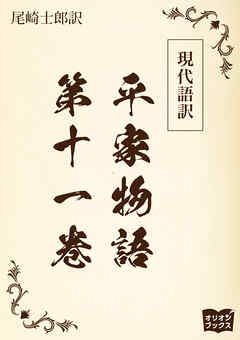 尾崎士郎訳
現代語訳
平家物語
第十一巻
オリオン
ブックス